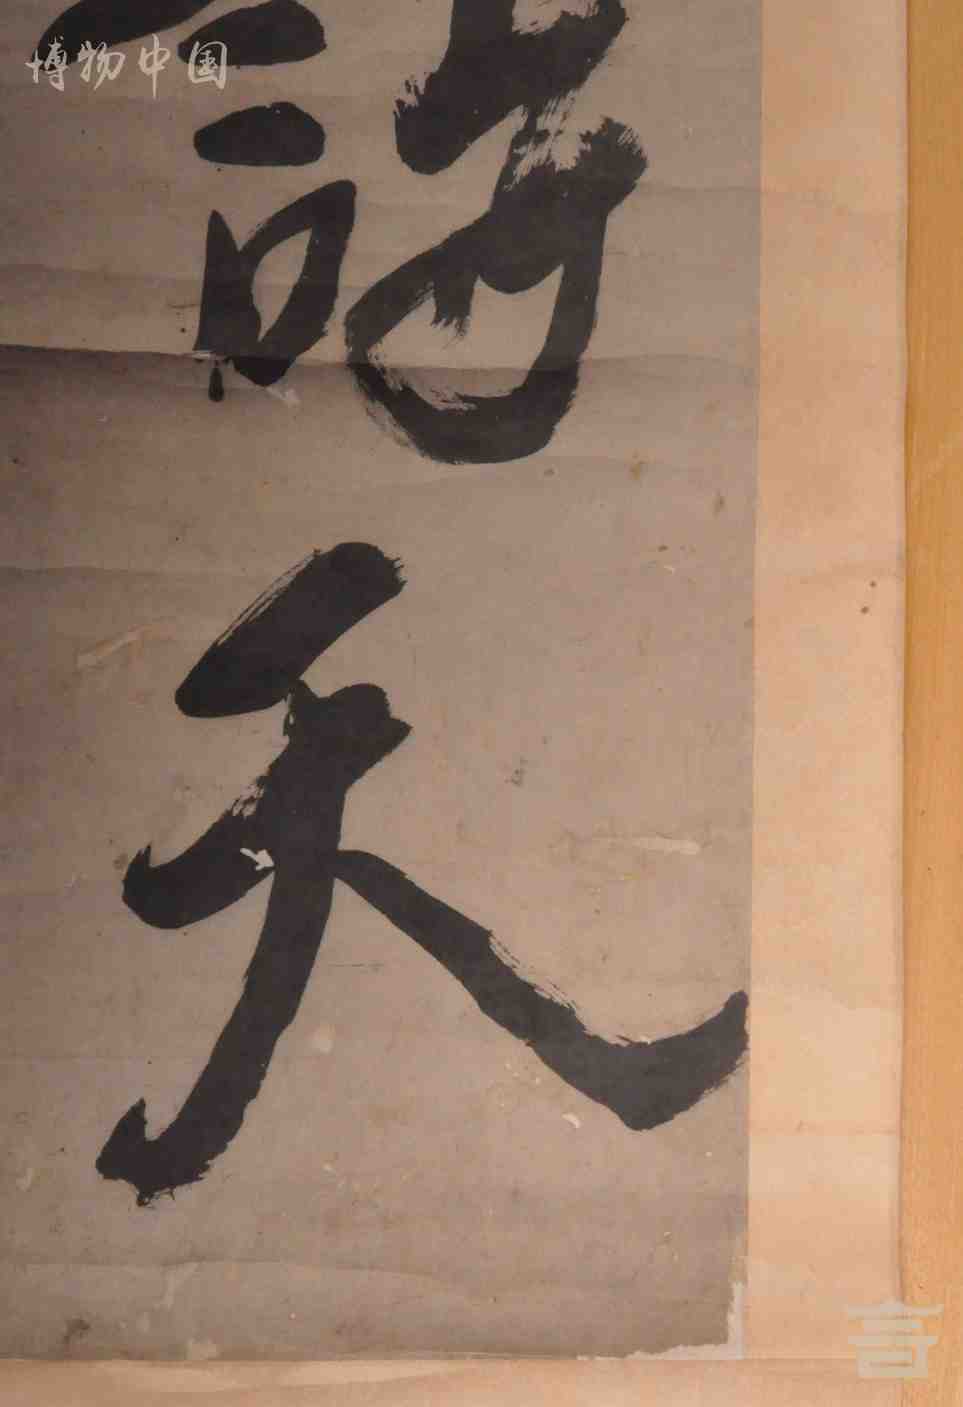 博物中国
天